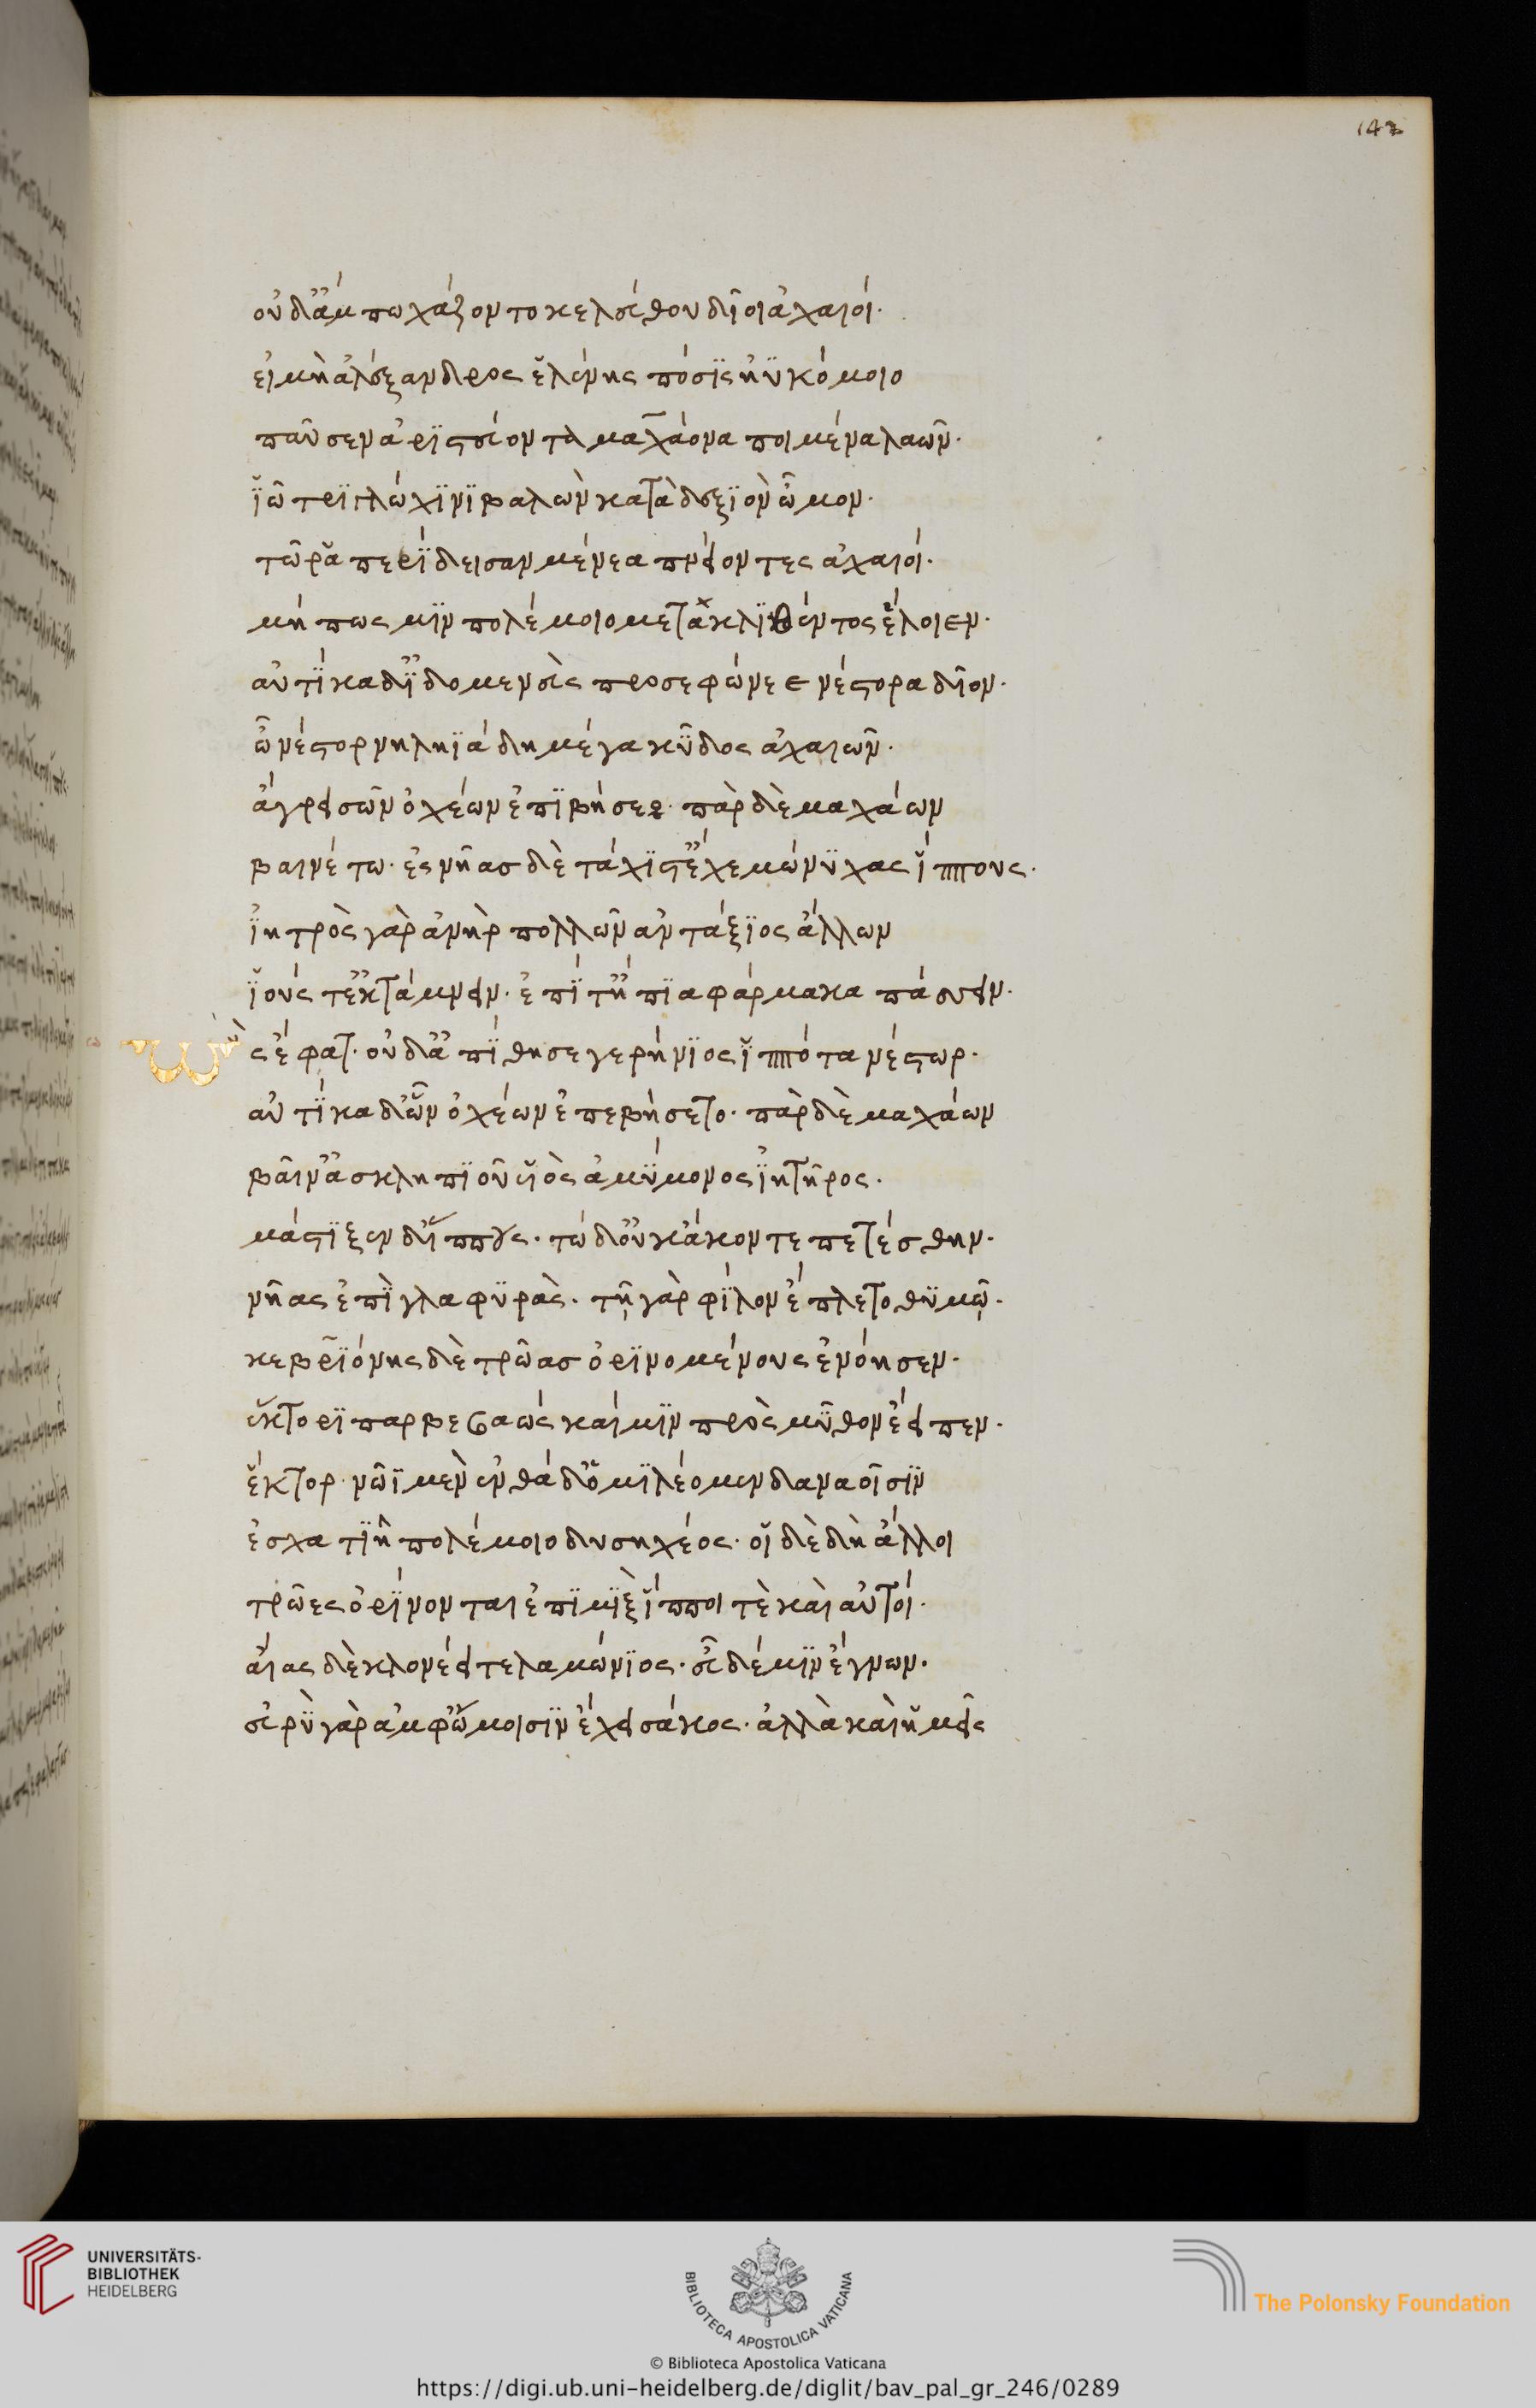 142
οὐδ' ἄν πω χάζοντο κελεύθου δῖοι ἀχαιοί·
εἰ μὴ ἀλέξανδρος ἑλένης πόσϊς ἠϋκόμοιο
παῦσεν ἀρϊστεύοντα μαχάονα ποιμένα λαῶν·
ἰῶ τρϊγλώχϊνϊ βαλὼν κατὰ δεξϊὸν ὦμον·
τῶ ῥα περίδεισαν μένεα πνείοντες ἀχαιοί·
μή πως μϊν πολέμοιο μετακλϊθέντος ἕλοιεν·
αὐτίκα δ' ἰδομενεὺς προσεφώνεε νέστορα δῖον·
ὦ νέστορ νηληϊάδη μέγα κῦδος ἀχαιῶν·
ἄγρει σῶν ὀχέων ἐπϊβήσεο· πὰρ δὲ μαχάων
βαινέτω· ἐς νῆας δὲ τάχϊστ' ἔχε μώνϋχας ἵππους·
ἰητρὸς γὰρ ἀνὴρ πολλῶν ἀντάξϊος ἄλλων
ἰούς τ' ἐκτάμνειν· ἐπί τ' ἤπϊα φάρμακα πάσσειν·
ὣς ἔφατ'· οὐδ' ἀπίθησε γερήνϊος ἱππότα νέστωρ·
αὐτίκα δ' ὧν ὀχέων ἐπεβήσετο· πὰρ δὲ μαχάων
βαῖν' ἀσκληπϊοῦ υἱὸς ἀμύμονος ἰητῆρος·
μάστϊξεν δ' ἵππους· τὼ δ' οὐκ ἄκοντε πετέσθην·
νῆας ἐπὶ γλαφϋράς· τῇ γὰρ φίλον ἔπλετο θϋμῷ·
κεβρϊόνης δὲ τρῶας ὀρϊνομένους ἐνόησεν·
ἕκτορϊ παρβεβαώς καί μϊν πρὸς μῦθον ἔειπεν·
ἕκτορ· νῶϊ μὲν ἐνθάδ' ὁμϊλέομεν δαναοῖσϊν
ἐσχατϊῆ πολέμοιο δυσηχέος· οἱ δὲ δὴ ἄλλοι
τρῶες ὀρίνονται ἐπϊμὶξ ἵπποι τὲ καὶ αὐτοί·
αἴας δὲ κλονέει τελαμώνϊος· εὖ δέ μϊν ἔγνων·
εὐρὺ γὰρ ἀμφ' ὤμοισϊν ἔχει σάκος· ἀλλὰ καὶ ἡμεῖς
UNIVERSITÄTS-
BIBLIOTHEK
HEIDELBERG
BIBLIOTECA APOSTOLICA VATICANA
The Polonsky Foundation
© Biblioteca Apostolica Vaticana
https://digi.ub.uni-heidelberg.de/diglit/bav_pal_gr_246/0289